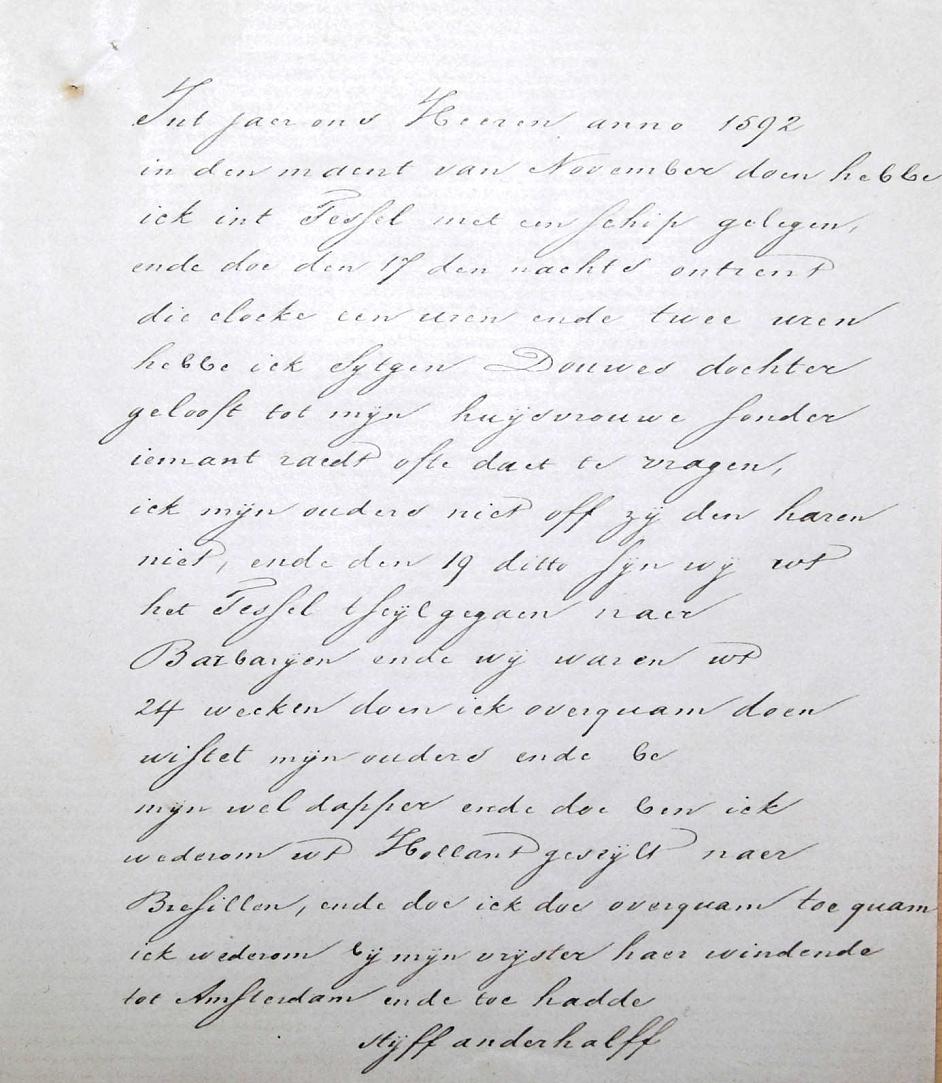 Int jaer ons Heeren anno 1592
in den maent van November doen hebbe
ick int Tessel met een schip gelegen,
ende doe den 17 den nachts ontrent
die clocke een uren ende twee uren
hebbe ick Sytgen Douwes dochter
gelooft tot mijn huijsvrouwe sonder
iemant raedt ofte daet te vragen,
ick mijn ouders niet off zij den haren
niet, ende den 19 ditto sijn wij wt
het Tessel tseijl gegaen naer
Barbarijen ende wij waren wt
24 weeken doen ick overquam doen
wistet mijn ouders ende be
mijn wel dapper ende doe ben ick
wederom wt Hollant geseijlt naer
Bresillen, ende doe ick doe overquam toe quam
ick wederom bij mijn vrijster haer windende
tot Amsterdam ende toe hadde
stijff anderhalff